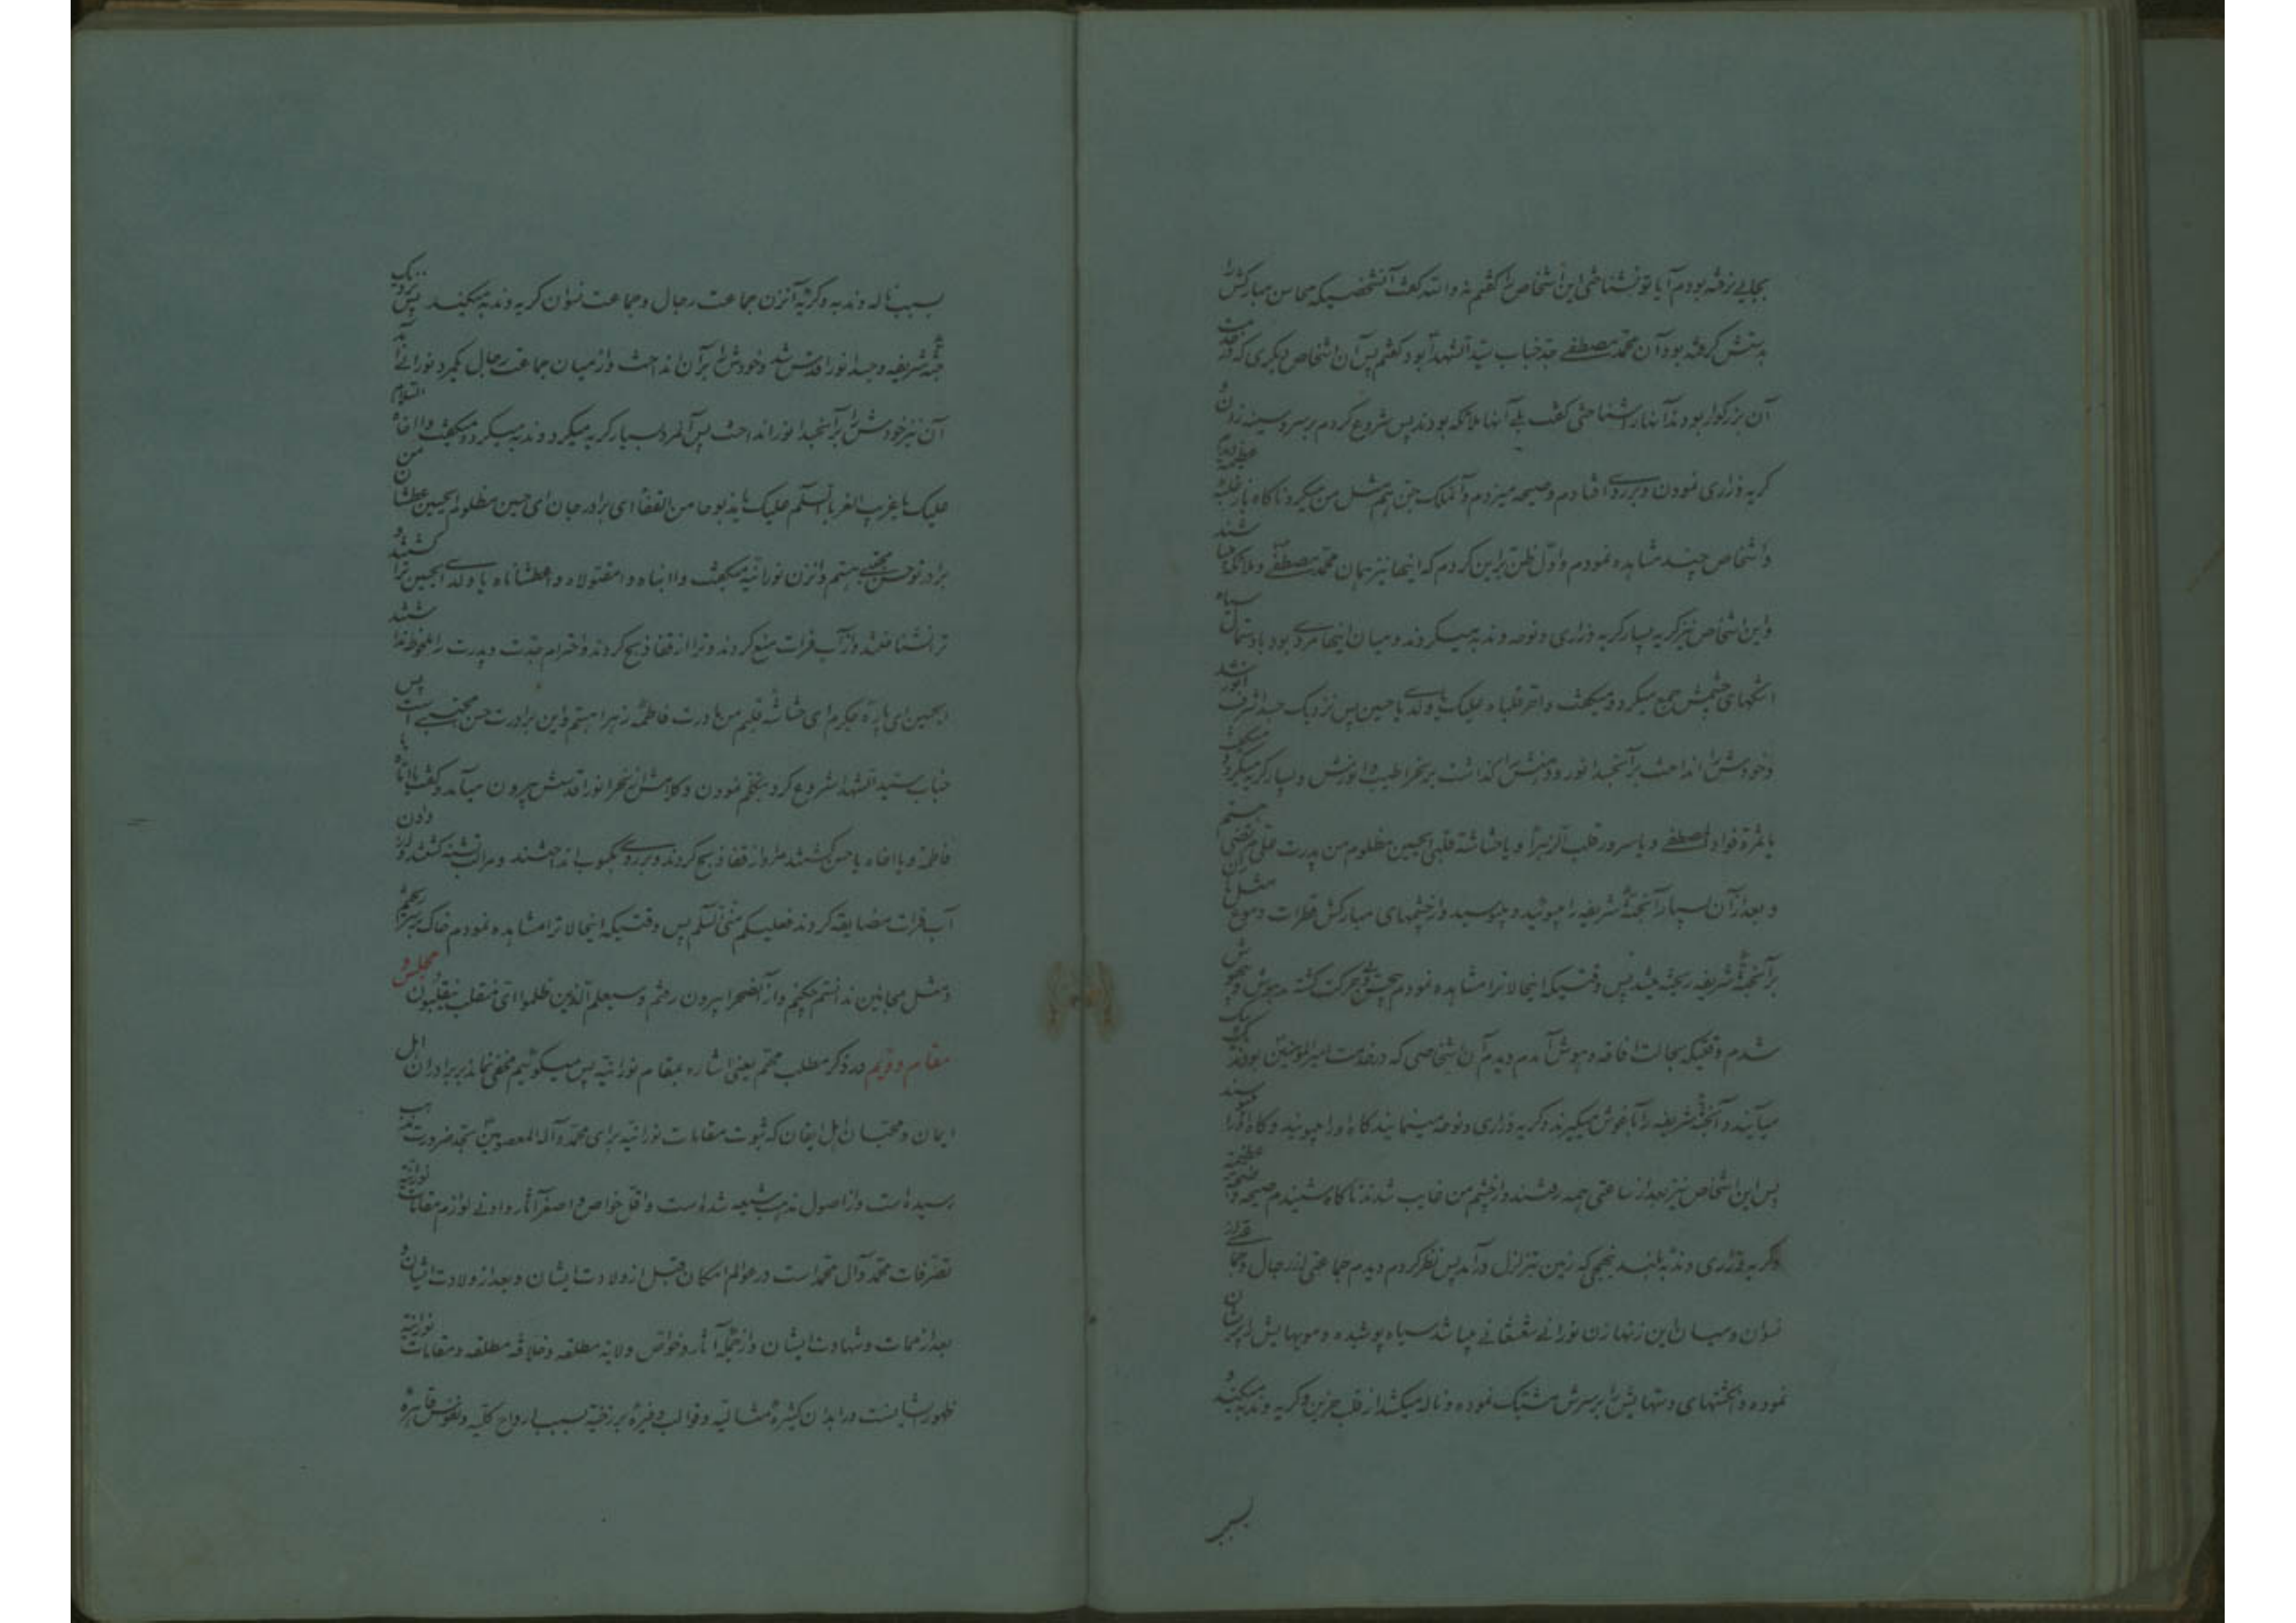 بجایی نرفته بودم آیا تو نشناختی این اشخاص را گفتم نه والله گفت آنشخصیکه محاسن مبارکش را
بدستش گرفته بود آن محمد مصطفی جد جناب سید الشهدا بود گفتم پس آن اشخاص دیگری که در خدمت
آن بزرگوار بودند آنها را شناختی گفت بلی آنها ملائکه بودند پس شروع کردم بر سر و سینه زدن و
گریه و زاری نمودن و بر روی افتادم و صیحه میزدم و آنملک جن هم مثل من میکرد ناگاه باز غلبه عظیمه دیدم
و اشخاص چند مشاهده نمودم و اول ظن براین کردم که اینها نیز همان محمد مصطفی و ملائکه میباشند
و این اشخاص نیز گریه بسیار گریه و زاری و نوحه و ندبه میکردند و میان اینها مردی بود با دستمال سیاه
اشکهای چشمش جمع میکرد و میگفت واقرة قلباه علیک یا ولدی یا حسین پس نزدیک جسد اشرف انور شد
و خودش را انداخت بر آنجسد انور و دهنش را گذاشت بر نحر اطیب و انورش و بسیار گریه میکرد و میگفت
یا ثمرة فواد المصطفی و یا سرور قلب الزهرا و یا حشاشة قلبی ایحسین مظلوم من پدرت علی مرتضی هستم
و بعد از آن بسیار آنجثه شریفه را میبوئید و میبوسید و از چشمهای مبارکش قطرات دموع مثل باران
بر آنجثه شریفه ریخته میشد پس وقتیکه اینحالات را مشاهده نمودم بیحس و بیحرکت گشته مدهوش و بیهوش
شدم وقتیکه بحالت افاقه و هوش آمدم دیدم آن اشخاصی که در خدمت امیر المؤمنین بودند یک یک
میآیند و آنجثه شریفه را بآغوش میگیرند و گریه و زاری و نوحه مینمایند گاه او را میبویند و گاه او را میبوسند
پس این اشخاص نیز بعد از ساعتی همه رفتند و از چشم من غایب شدند ناگاه شنیدم صیحه و ضجه عظیمه
و گریه و زاری و ندبه بلند بنحوی که زمین بتزلزل درآمد پس نظر کردم دیدم جماعتی از رجال و جماعتی از
نسوان و میان این زنها زن نورانی شعشعانی میباشد سیاه پوشیده و مویهایش را پریشان
نموده و انگشتهای دستهایش را بر سرش مشتبک نموده و ناله میکشد از قلب حزین و گریه و ندبه میکند و
بسبب ناله و ندبه و گریه آنزن جماعت رجال و جماعت نسوان گریه و ندبه میکنند پس نزدیک
جثه شریفه و جسد انور اقدس شد و خودش را بر آن انداخت و از میان جماعت رجال یکمرد نورانی آمد
آن نیز خودش را بر آنجسد انور انداخت پس آنمرد بسیار گریه میکرد و ندبه میکرد و میگفت وااخاه السلام
علیک یا غریب الغربا السلام علیک یا مذبوحا من القفا ای برادر جان ای حسین مظلوم ایحسین عطشان من
برادر تو حسن مجتبی هستم و آنزن نورانیه میگفت واابناه وامقتولاه واعطشاناه یا ولدی ایحسین ترا کشتند و
ترا نشناختند و از آب فرات منع کردند و ترا از قفا ذبح کردند و احترام جدت و پدرت را ملحوظ نداشتند
ایحسین ای پاره جگرم ای حشاشه قلبم من مادرت فاطمه زهرا هستم و این برادرت حسن مجتبی است پس
جناب سید الشهدا شروع کرد بتکلم نمودن و کلامش از نحر انور اقدسش بیرون میآمد و گفت یا اماه یا
فاطمه و یا اخاه یا حسن کشتند مرا و از قفا ذبح کردند و بر روی منکوب انداختند و مرا لب تشنه کشتند و از دادن
آب فرات مضایقه کردند فعلیکم منی السلام پس وقتیکه اینحالات را مشاهده نمودم خاک بر سر ریختم
و مثل مجانین ندانستم چکنم و از آنصحرا بیرون رفتم و سیعلم الذین ظلموا ای منقلب ینقلبون مجلس و
مقام دویم در ذکر مطلب مهم یعنی اشاره بمقام نورانیه پس میگوئیم مخفی نماند بر برادران اهل
ایمان و محبان اهل ایقان که ثبوت مقامات نورانیه برای محمد و آله المعصومین بحد ضرورت مذهب
رسیده است و از اصول مذهب شیعه شده است و اقل خواص و اصغر آثار و ادنی لوازم مقامات نورانیه
تصرفات محمد و آل محمد است در عوالم امکان قبل از ولادت ایشان و بعد از ولادت ایشان و
بعد از ممات و شهادت ایشان و از جمله آثار و خواص ولایه مطلقه و خلافه مطلقه و مقامات نورانیه
ظهور ایشانست در ابدان کثیره مثالیه و قوالب وفیره برزخیه بسبب ارواح کلیه و نفوس قاهره